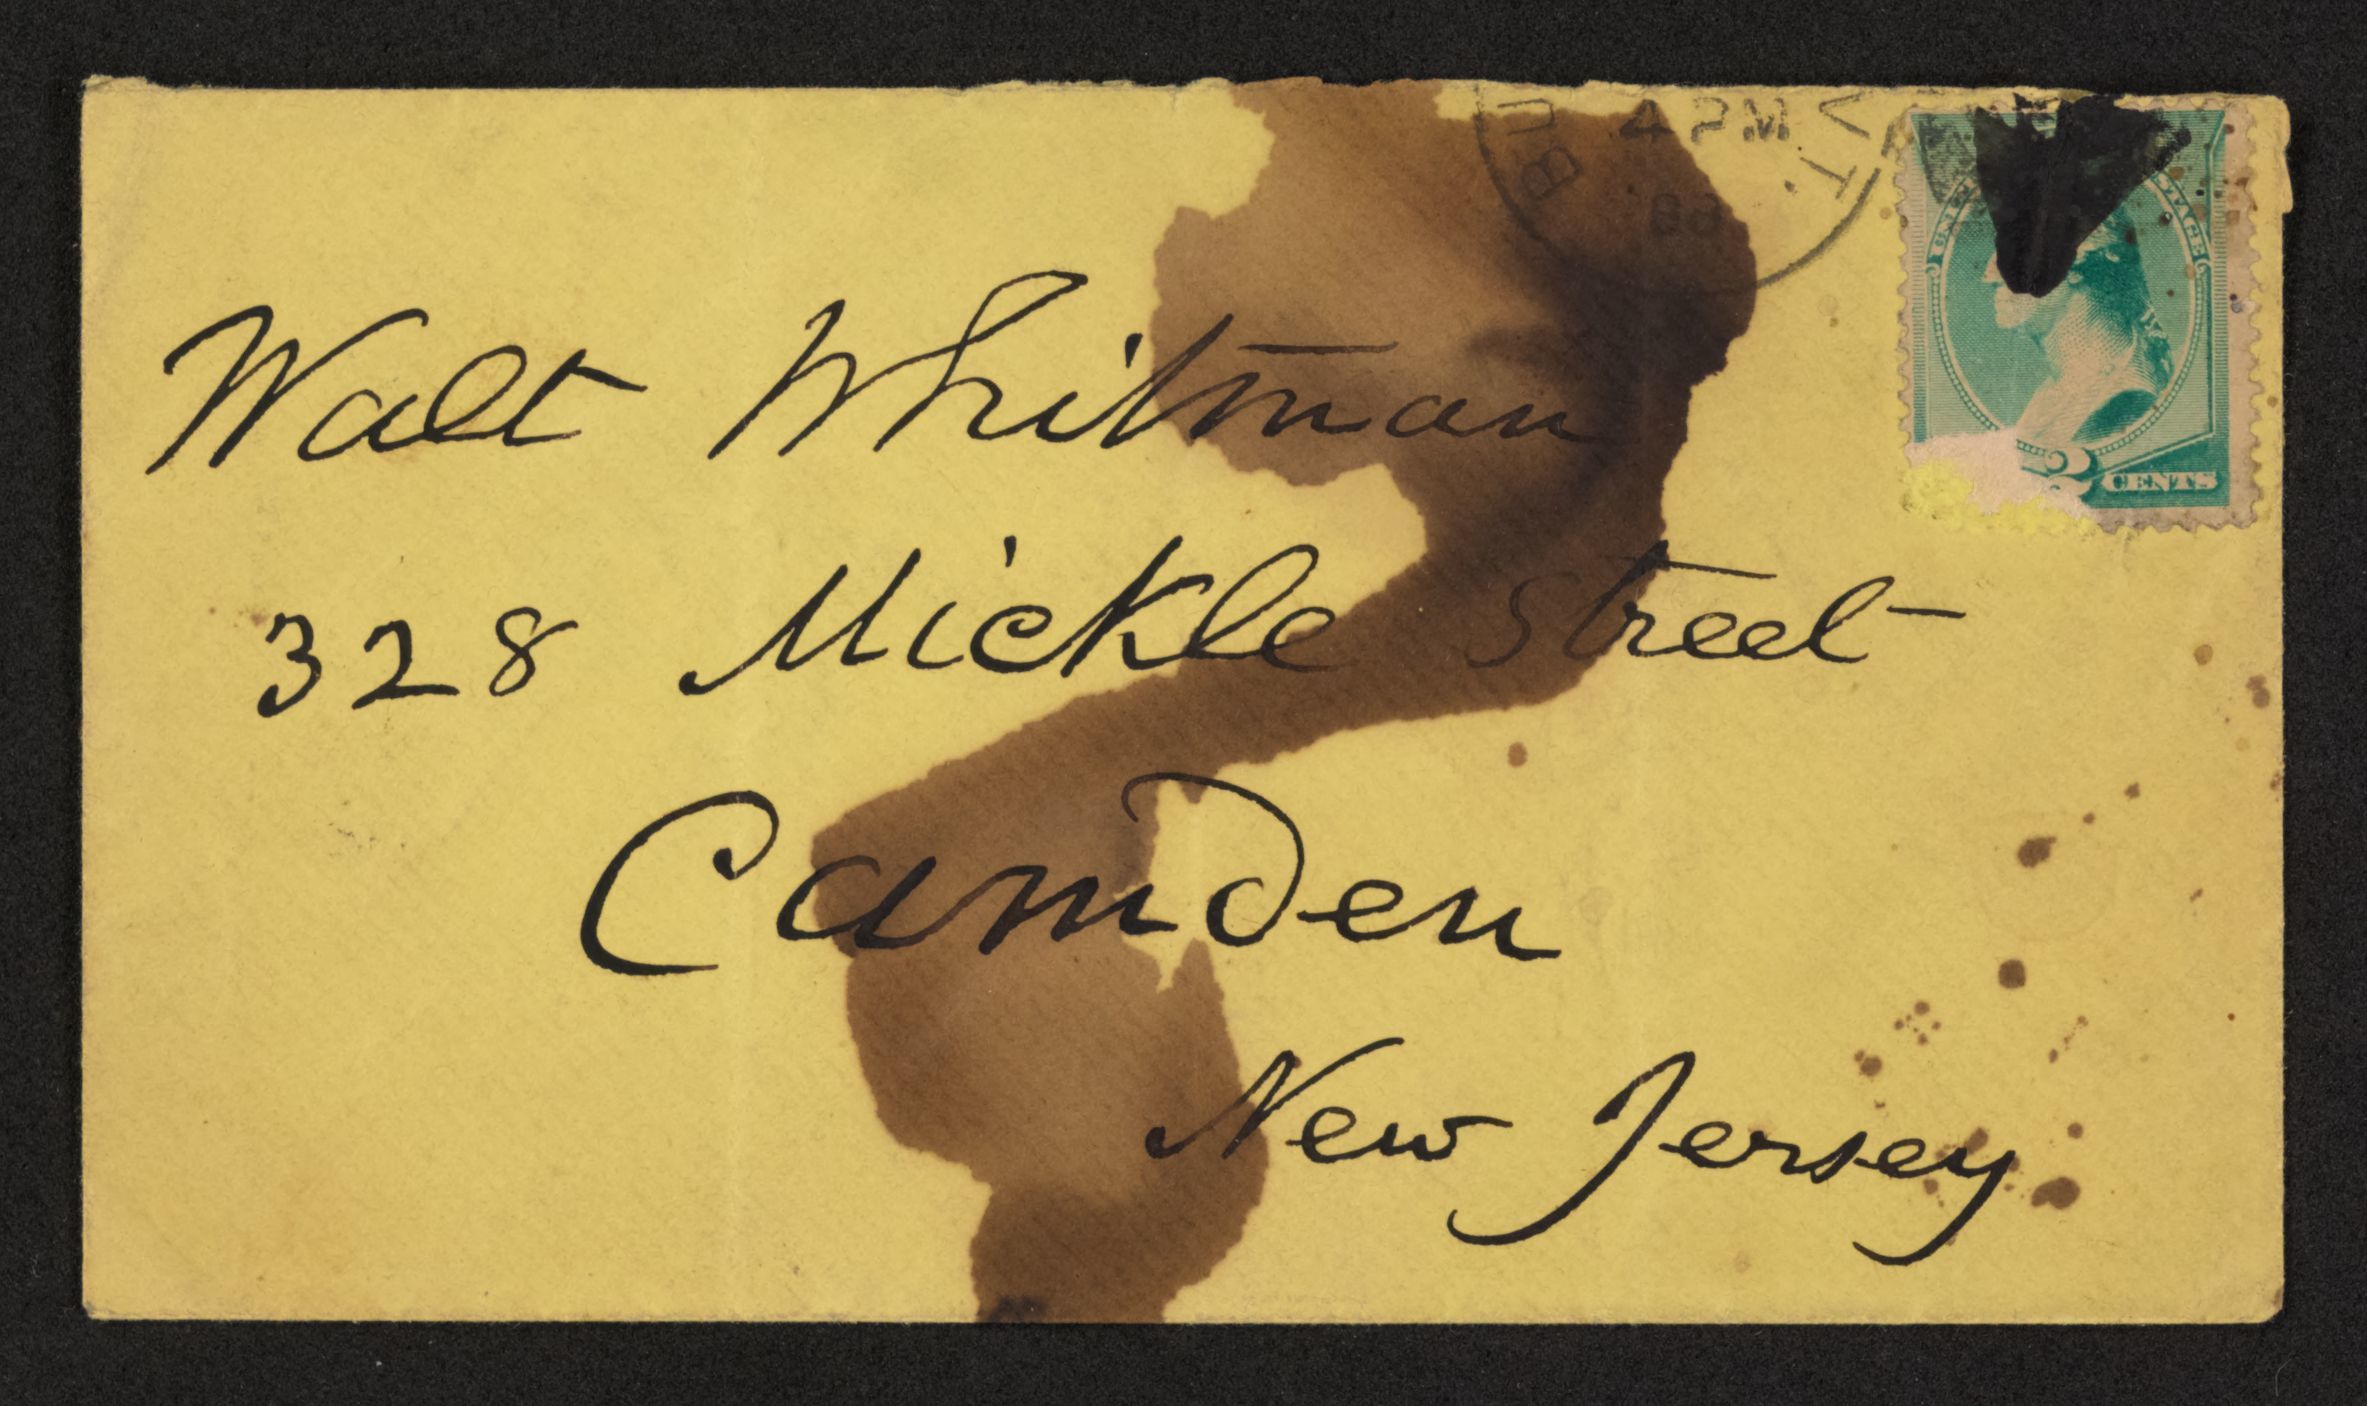 4 PM
BU VT.
88
POSTAGE
2 2
CENTS
Walt Whitman
328 Mickle Street
Camden
New Jersey